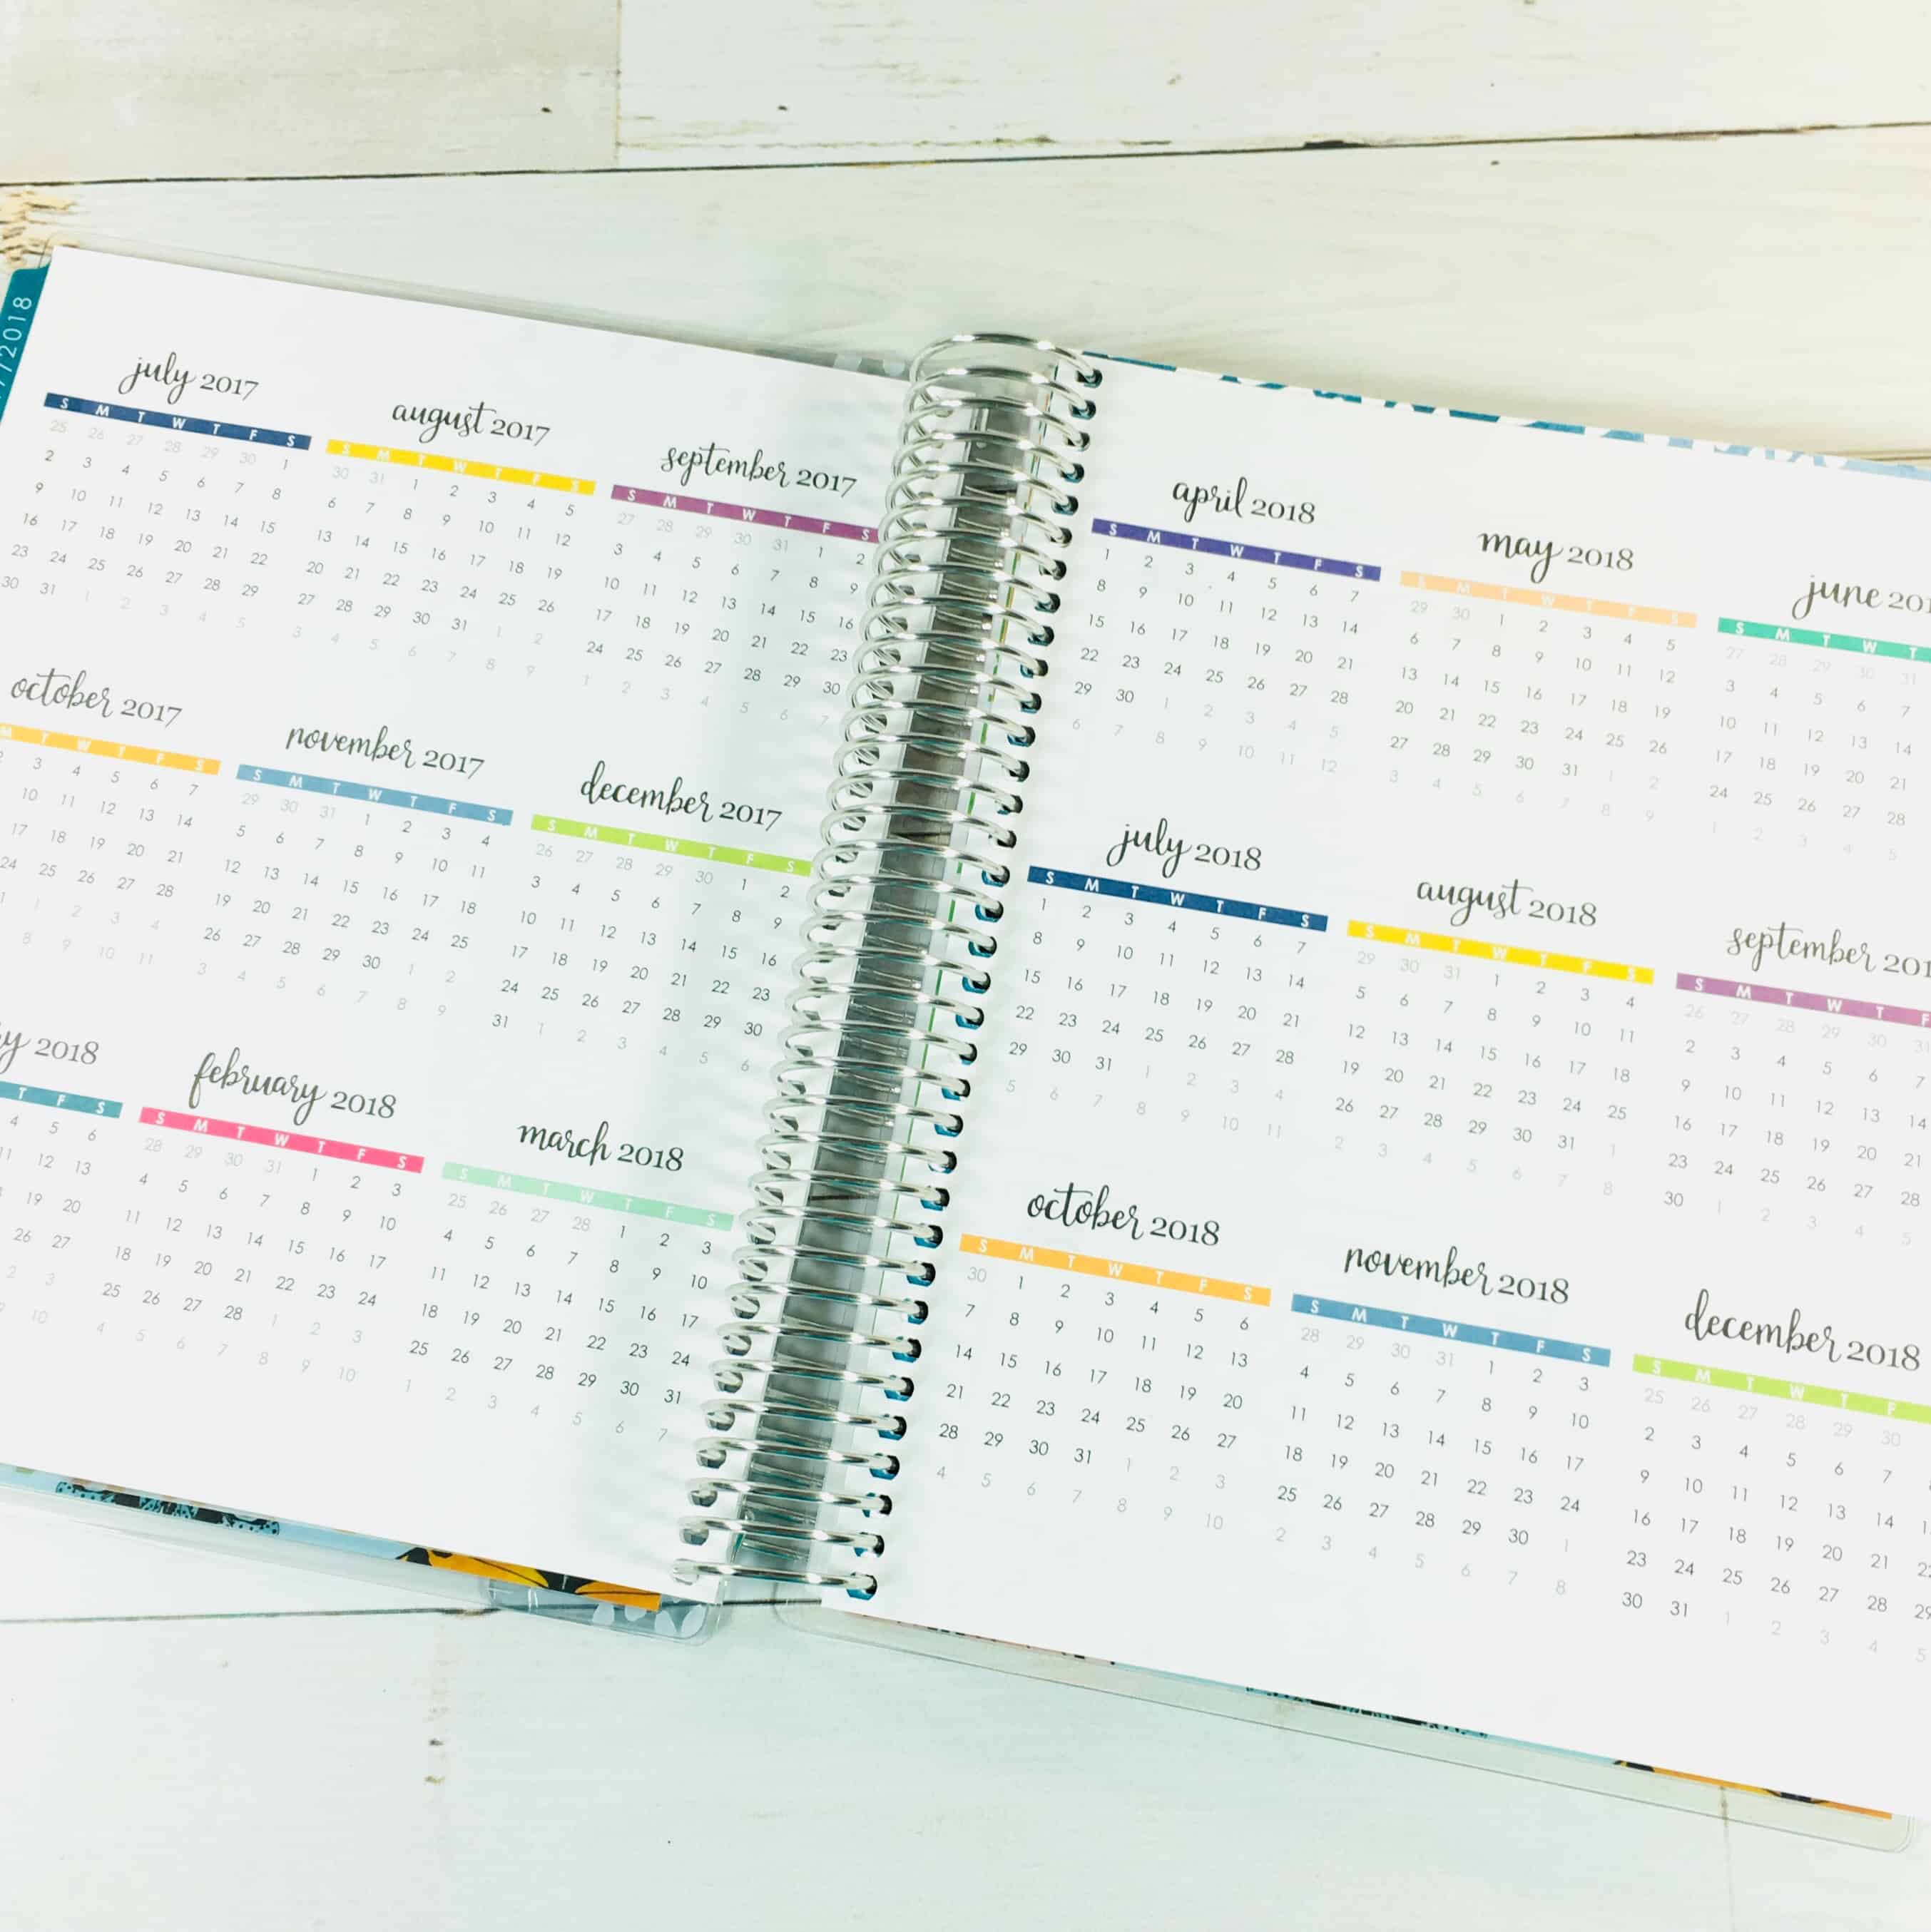 2018
july 2017
S M T W T F S
25 26 27 28 29 30 1
2 3 4 5 6 7 8
9 10 11 12 13 14 15
16 17 18 19 20 21 22
23 24 25 26 27 28 29
30 31 1 2 3 4 5
august 2017
S M T W T F S
30 31 1 2 3 4 5
6 7 8 9 10 11 12
13 14 15 16 17 18 19
20 21 22 23 24 25 26
27 28 29 30 31 1 2
3 4 5 6 7 8 9
september 2017
S M T W T F S
27 28 29 30 31 1 2
3 4 5 6 7 8 9
10 11 12 13 14 15 16
17 18 19 20 21 22 23
24 25 26 27 28 29 30
1 2 3 4 5 6 7
october 2017
M T W T F S
3 4 5 6 7
10 11 12 13 14
17 18 19 20 21
24 25 26 27 28
1 2 3 4
8 9 10 11
november 2017
S M T W T F S
29 30 31 1 2 3 4
5 6 7 8 9 10 11
12 13 14 15 16 17 18
19 20 21 22 23 24 25
26 27 28 29 30 1 2
3 4 5 6 7 8 9
december 2017
S M T W T F S
26 27 28 29 30 1 2
3 4 5 6 7 8 9
10 11 12 13 14 15 16
17 18 19 20 21 22 23
24 25 26 27 28 29 30
31 1 2 3 4 5 6
2018
T F S
4 5 6
12 13
19 20
26 27
2 3
10
february 2018
S M T W T F S
28 29 30 31 1 2 3
4 5 6 7 8 9 10
11 12 13 14 15 16 17
18 19 20 21 22 23 24
25 26 27 28 1 2 3
4 5 6 7 8 9 10
march 2018
S M T W T F S
25 26 27 28 1 2 3
4 5 6 7 8 9 10
11 12 13 14 15 16 17
18 19 20 21 22 23 24
25 26 27 28 29 30 31
1 2 3 4 5 6 7
april 2018
S M T W T F S
1 2 3 4 5 6 7
8 9 10 11 12 13 14
15 16 17 18 19 20 21
22 23 24 25 26 27 28
29 30 1 2 3 4 5
6 7 8 9 10 11 12
may 2018
S M T W T F S
29 30 1 2 3 4 5
6 7 8 9 10 11 12
13 14 15 16 17 18 19
20 21 22 23 24 25 26
27 28 29 30 31 1 2
3 4 5 6 7 8 9
june 201
S M T W T
27 28 29 30 31
3 4 5 6 7
10 11 12 13 14
17 18 19 20 21
24 25 26 27 28
1 2 3 4 5
july 2018
S M T W T F S
1 2 3 4 5 6 7
8 9 10 11 12 13 14
15 16 17 18 19 20 21
22 23 24 25 26 27 28
29 30 31 1 2 3 4
5 6 7 8 9 10 11
august 2018
S M T W T F S
29 30 31 1 2 3 4
5 6 7 8 9 10 11
12 13 14 15 16 17 18
19 20 21 22 23 24 25
26 27 28 29 30 31 1
2 3 4 5 6 7 8
september 201
S M T W T F
26 27 28 29 30 31
2 3 4 5 6 7
9 10 11 12 13 14
16 17 18 19 20 21
23 24 25 26 27 28
30 1 2 3 4 5
october 2018
S M T W T F S
30 1 2 3 4 5 6
7 8 9 10 11 12 13
14 15 16 17 18 19 20
21 22 23 24 25 26 27
28 29 30 31 1 2 3
4 5 6 7 8 9 10
november 2018
S M T W T F S
28 29 30 31 1 2 3
4 5 6 7 8 9 10
11 12 13 14 15 16 17
18 19 20 21 22 23 24
25 26 27 28 29 30 1
2 3 4 5 6 7 8
december 2018
S M T W T F
25 26 27 28 29 30
2 3 4 5 6 7
9 10 11 12 13 14
16 17 18 19 20 21
23 24 25 26 27 28 29
30 31 1 2 3 4 5